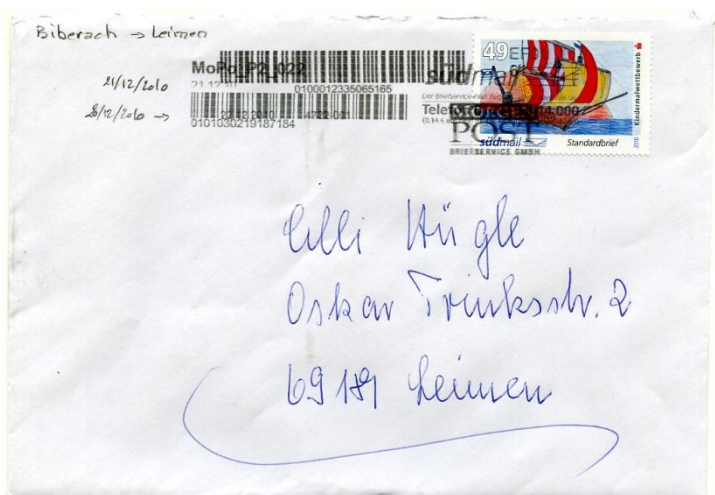 Biberach → Leimen
21/12/2010
20/12/2010 →
MoPo_P2_022
21.12.10
0100012335065165
0101030219187184
49
südmail
Der BriefService
MORGEN
POST
BRIEFSERVICE GMBH
südmail Standardbrief
Kindermalwettbewerb
2010
Hügle
Oskar Trinksstr. 2
69181 Leimen